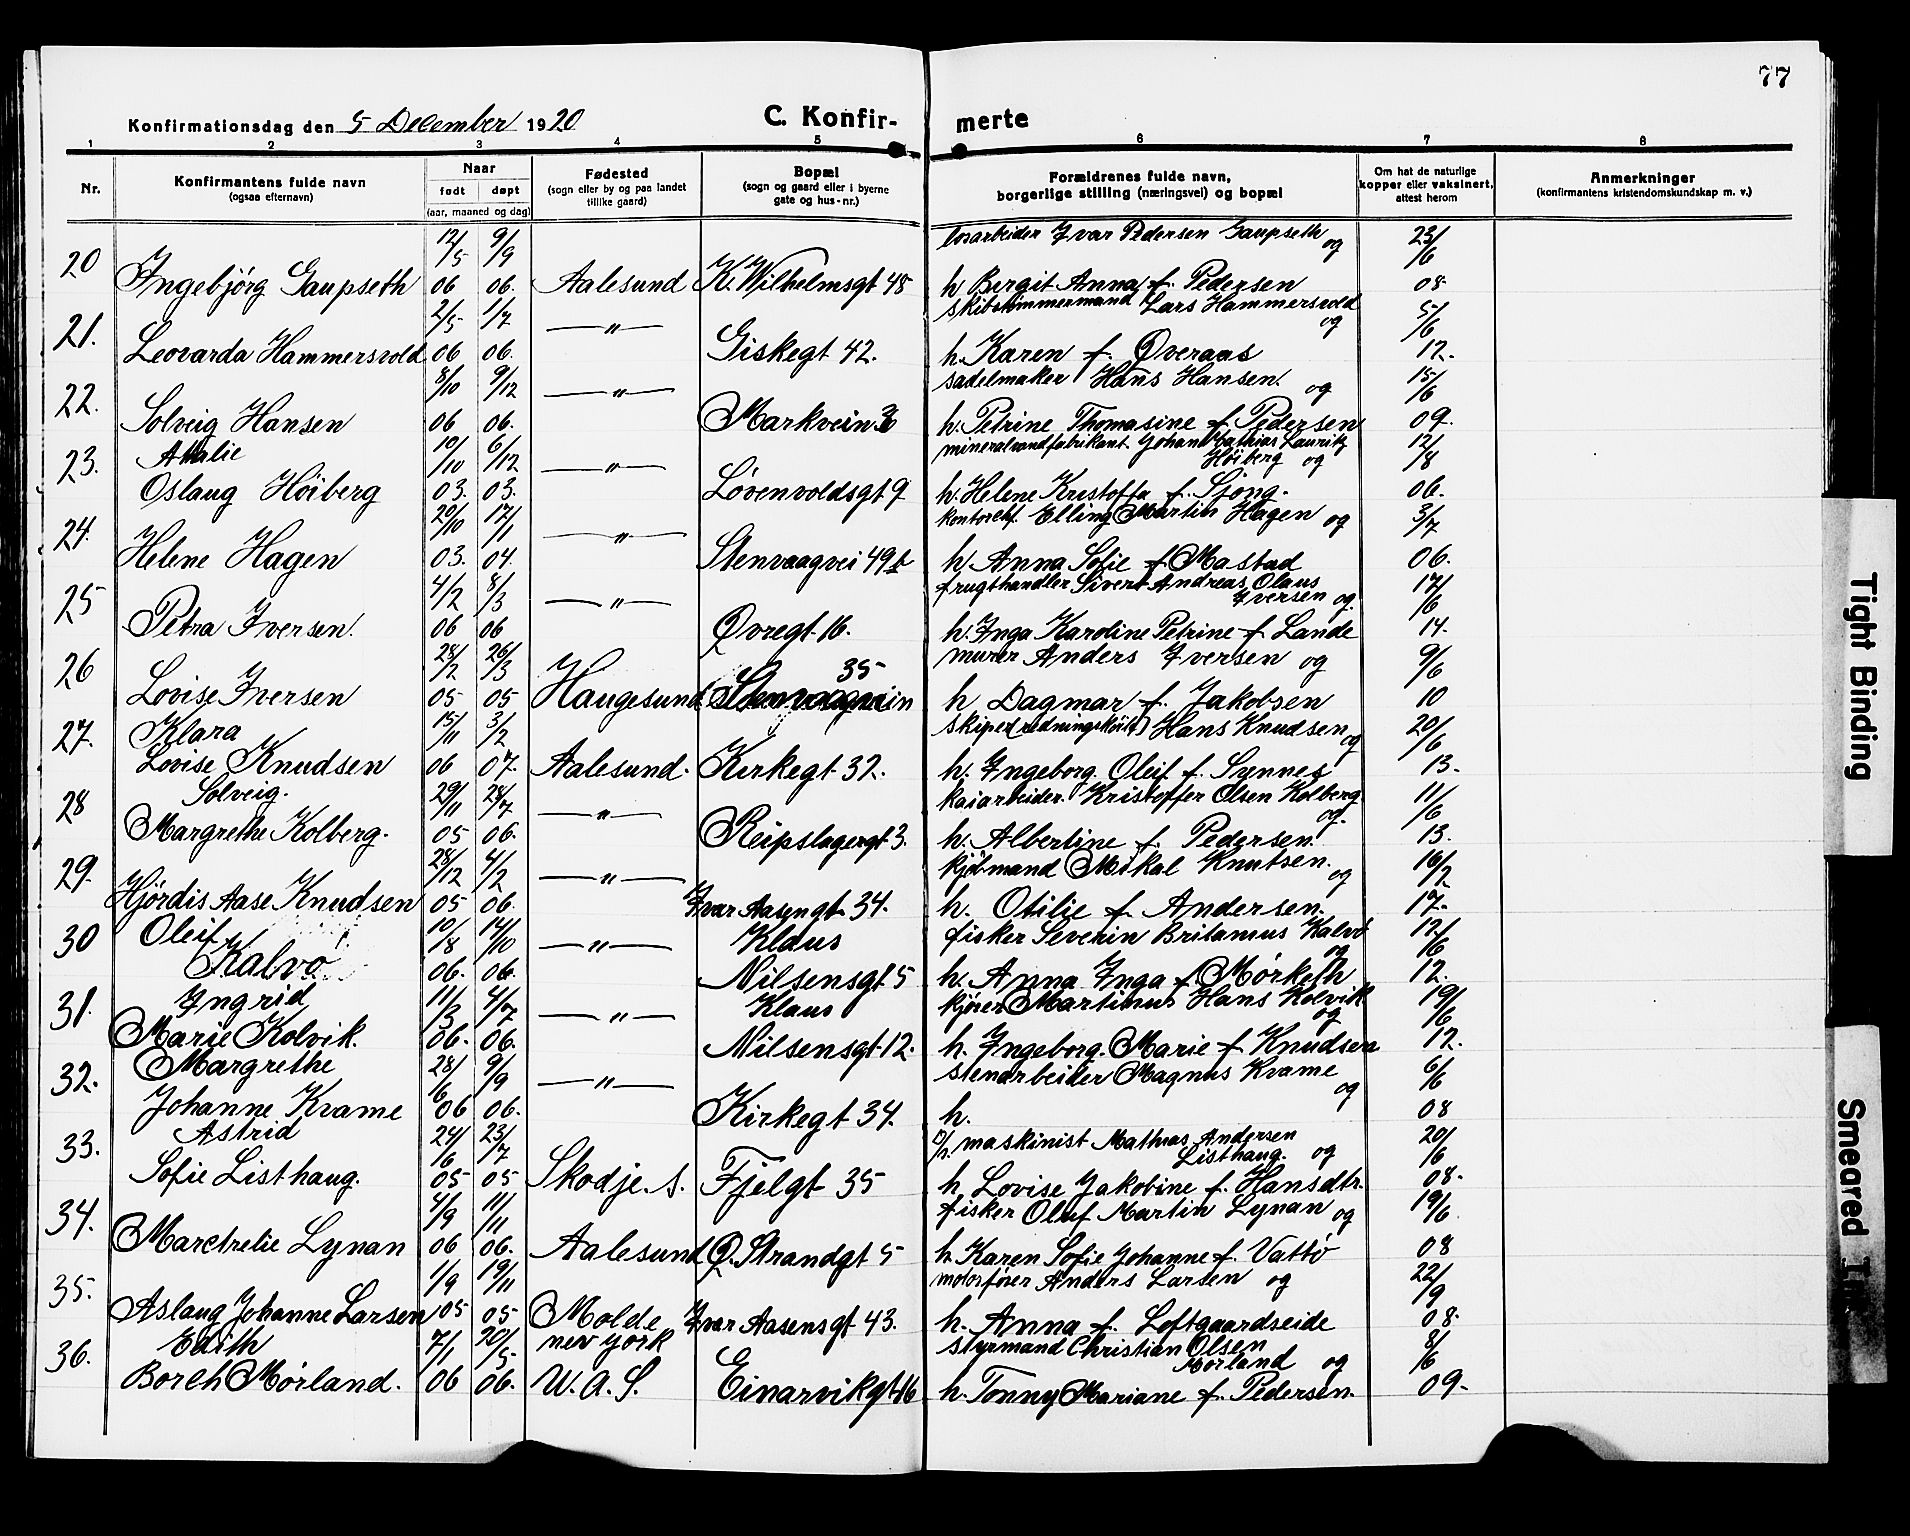 77
Konfirmationsdag den 5 December 1920
C. Konfir- merte
1 2 3 4 5 6 7 8
Nr.
Konfirmantens fulde navn
(ogsaa efternavn)
Naar
født døpt
(aar, maaned og dag)
Fødested
(sogn eller by og paa landet
tillike gaard)
Bopæl
(sogn og gaard eller i byerne
gate og hus-nr.)
Forældrenes fulde navn,
borgerlige stilling (næringsvei) og bopæl
Om hat de naturlige
kopper eller vaksinert,
attest herom
Anmerkninger
(konfirmantens kristendomskundskap m. v.)
12/5 9/9 losarbeider Ivar Pedersen Gaupseth og 23/6
20 Ingebjörg Gaupseth 06 06. Aalesund K. Wilhelmsgt 48 h Birgit Anna f. Pedersen 08
2/5 1/7 skibstømmermand Lars Hammersvold og 5/6
21. Leovarda Hammersvold 06 06. —"— Giskegt 42. h. Karen f. Øveraas 12.
8/10 9/12 sadelmaker Hans Hansen og 15/6
22. Solveig Hansen 06 06. —"— Markvein 3 h. Petrine Thomasine f. Pedersen 09.
23. Atalie 19/10 6/12 mineralvandfabrikant Johan Mathias Lauritz Höiberg og 12/8
Oslaug Höiberg 03. 03. —"— Løvenvoldsgt 9 h. Helene Kristoffa f. Sjong. 06.
20/10 17/1 kontorchf. Elling Martin Hagen og 3/7
24. Helene Hagen 03. 04. —"— Stenvaagvei 49b h. Anna Sofie f. Mastad 06.
4/2 8/3 frugthandler Sivert Andreas Olaus Iversen og 17/6
25 Petra Iversen. 06 06 —"— Øvregt 16. h. Inga Karoline Petrine f. Lande 14.
28/2 26/3 murer Anders Iversen og 9/6
26 Lovise Iversen 05 05 Haugesund Stenvaagvein 35 h Dagmar f. Jakobsen 10
27. Klara 15/11 3/2 skiper (redningsköite) Hans Knudsen og 20/6
Lovise Knudsen 06 07. Aalesund. Kirkegt 32. h. Ingeborg Oleif f. Synnes 13.
28 Solveig. 29/11 28/7 kaiarbeider Kristoffer Olsen Kolberg og. 11/6
Margrethe Kolberg. 05 06. —"— Reipslagergt 3. h. Albertine f. Pedersen. 13.
28/12 4/2 kjöbmand Mikal Knutsen. og 16/2
29. Hjördis Aase Knudsen 05 06. —"— Ivar Aasengt 34. h. Otilie f. Andersen. 17.
30 Oleif 10/8 14/10 Klaus fisker Severin Britanius Kalvø og 12/6
Kalvø 06. 06. —"— Nilsensgt 5 h. Anna Inga f. Mørketh 12.
31. Ingrid 11/3 4/7 Klaus kjører Martinus Hans Kolvik og 19/6
Marie Kolvik. 06. 06. —"— Nilsensgt 12. h. Ingeborg. Marie f. Knudsen 12.
32. Margrethe 28/6 9/9 stenarbeider Magnus Krame og 6/6
Johanne Krame 06 06. —"— Kirkegt 34. h. 08
33. Astrid 24/6 23/7 maskinist Mathias Andersen Listhaug. og 20/6
Sofie Listhaug. 05 05 Skodje. s. Fjelgt 35 h. Lovise Jakobine f. Hansdtr. 08.
4/9 11/11 fisker Oluf Martin Lynan og 19/6
34. Marctrelie Lynan 06 06. Aalesund Ø. Strandgt 5 h. Karen Sofie Johanne f. Vattø 08
1/9 19/11 motorfører Anders Larsen og 22/9
35. Aslaug Johanne Larsen 05 05 Molde Ivar Aasensgt 43. h. Anna f. Loftgaardseide 08.
36. Edith 7/1 20/5 new york styrmand Christian Olsen Mørland og 8/6
Borch Mørland. 06 06. U. A. S. Einarvikgt 16 h. Tonny Mariane f. Pedersen. 09.
Tight Binding
Smeared